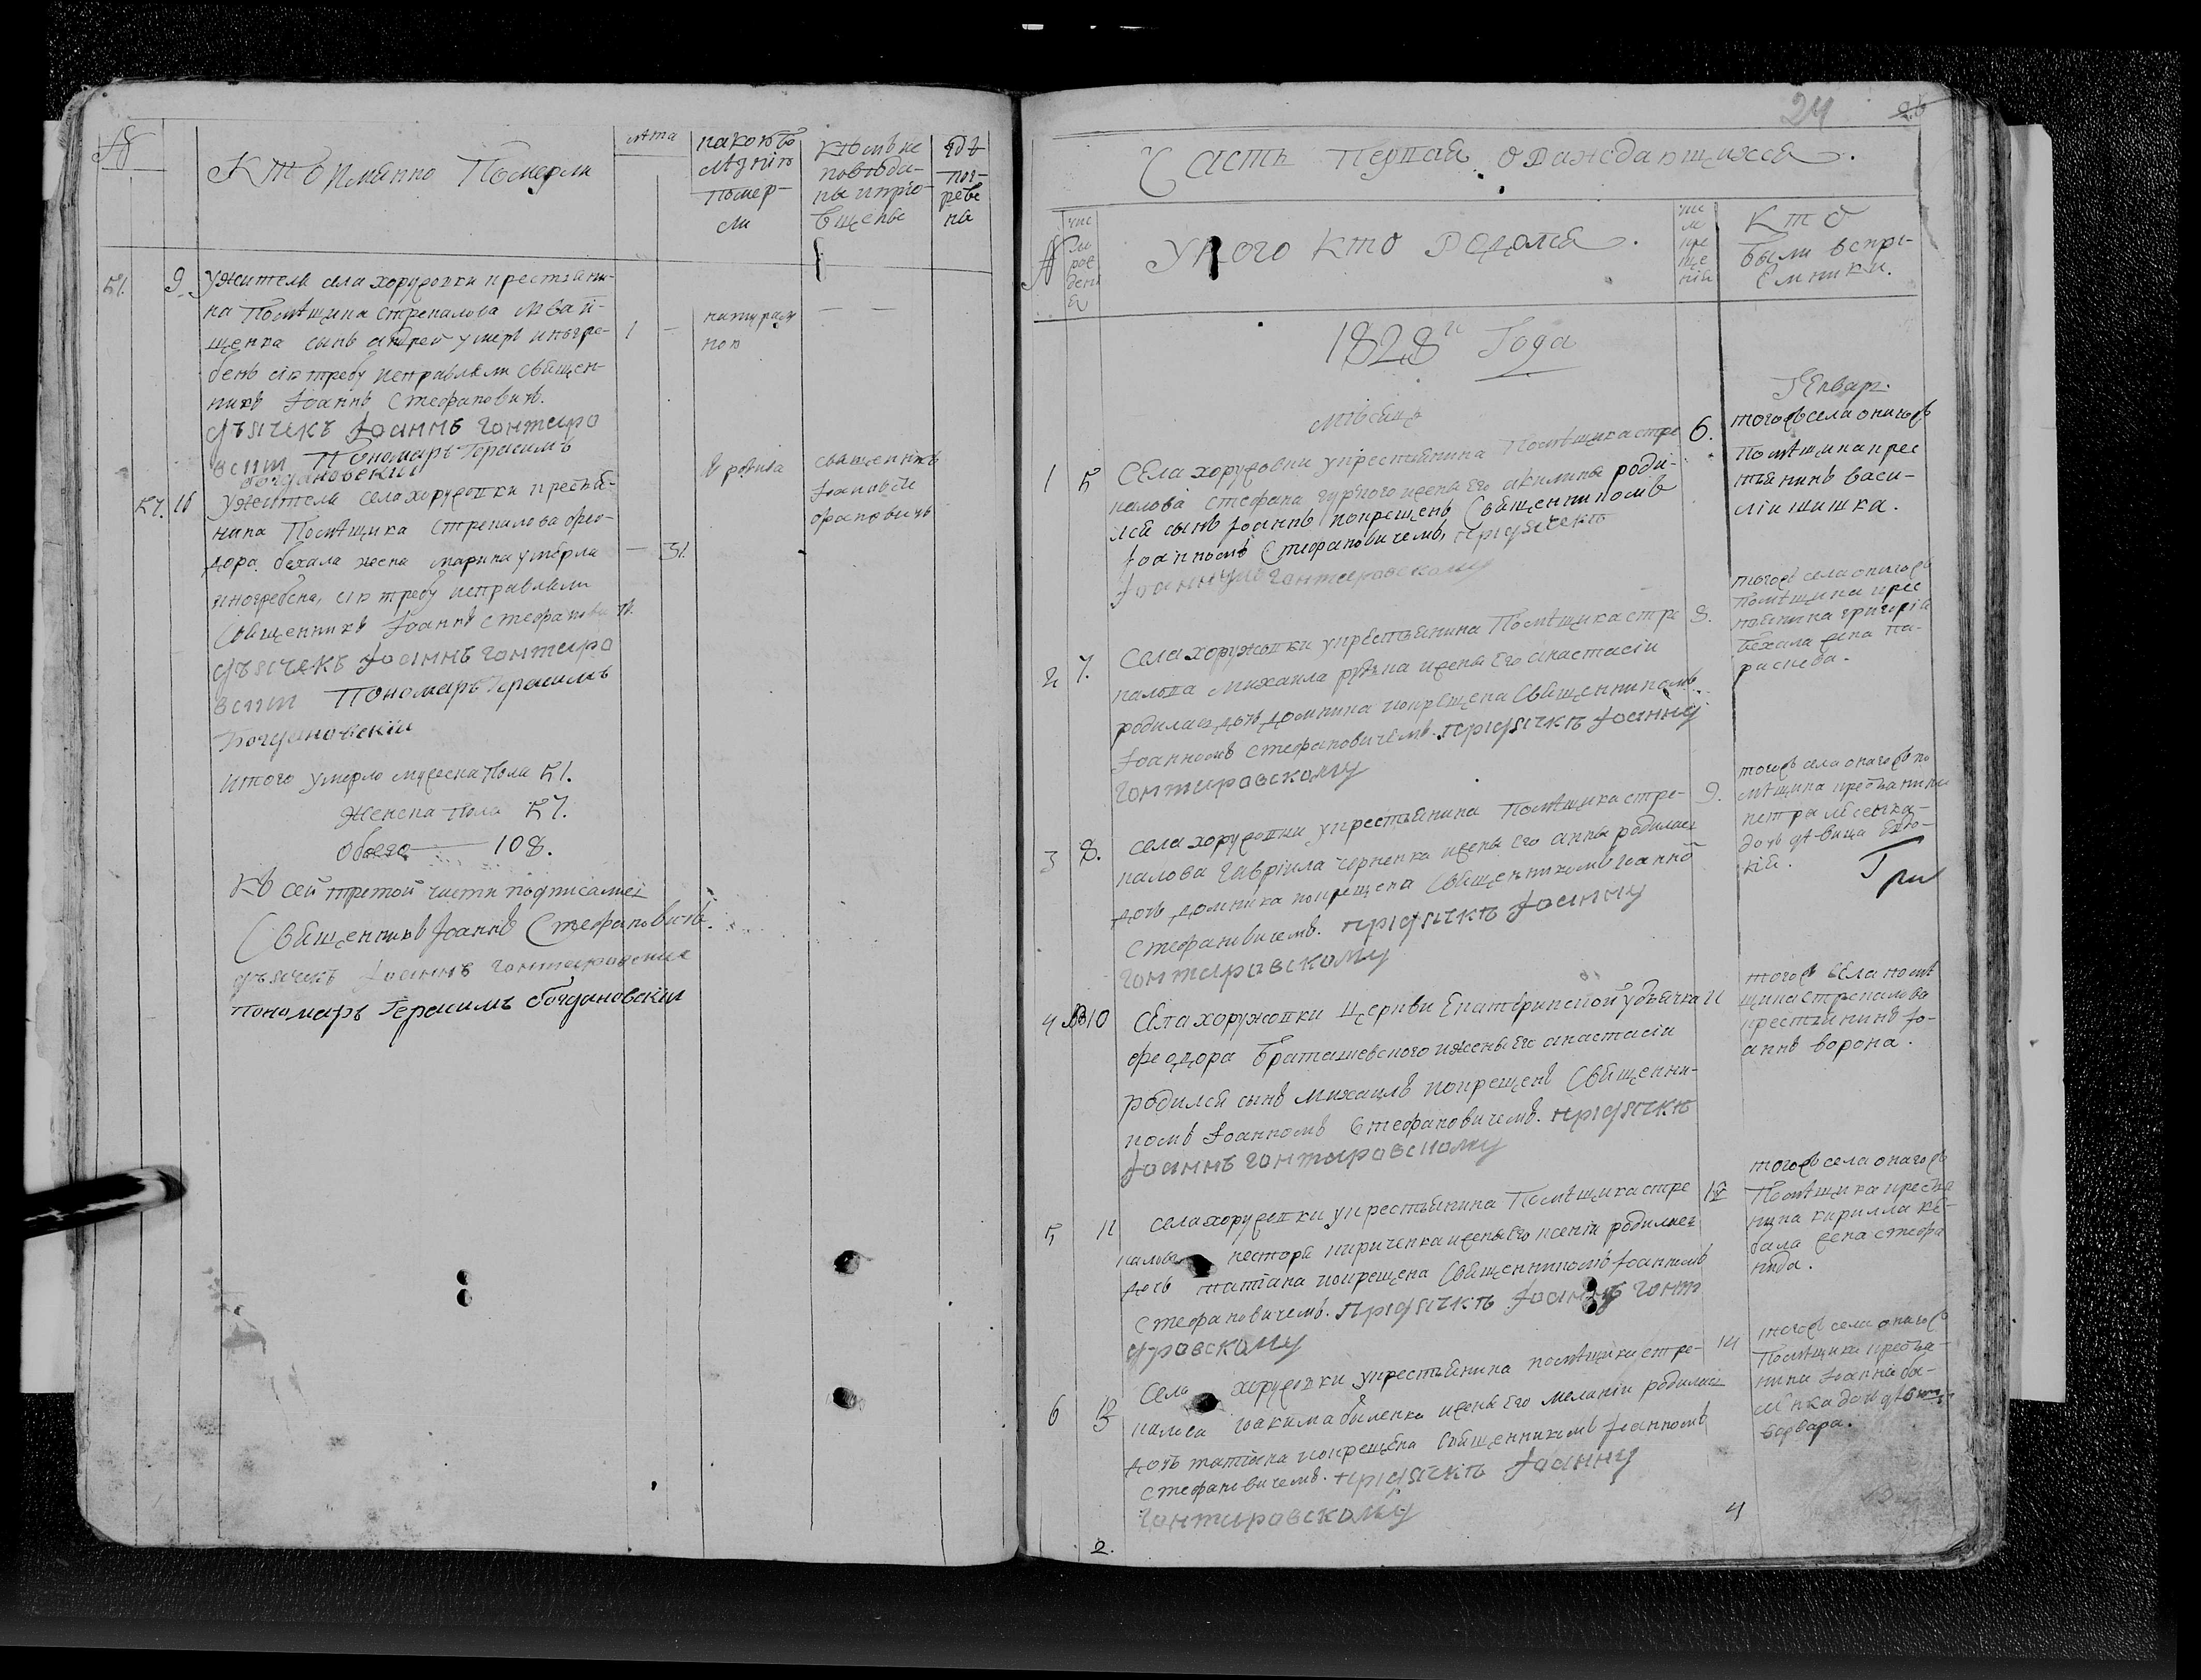 №
Кто имянно Померли
лѣта
какою бо
лѣзнію
помер-
ли
кѣмъ ис
повѣда-
ны и прiо-
бщены
гдѣ
пог-
ребе
ны
51. 9.
У жителя села хоружовки крестьяни-
на Помѣщика Стрекалова
щенка сынъ андрей умеръ и погре-
бенъ сію требу исправляли Священ-
никъ Іоаннъ Стефановичъ.
дьячекъ Іоаннъ гонтаро
вскіи Пономаръ Герасимъ
богдановскіи
1 —
натурал
ною
— —
57. 16
У жителя села хоружовки крестья-
нина Помѣщика Стрекалова фео-
дора бехала жена марина умерла
и погребена, сію требу исправляли
Священникъ Іоаннъ Стефановичъ.
дьячекъ Іоаннъ гонтаро
вскіи Пономаръ Герасимъ
Богдановскіи
— 31.
священникъ
Іоаннъ Сте
фановичъ
Итого умерло мужеска Пола 51.
Женска пола 57.
Обоего — 108.
Къ сей третой части подписались
Священникъ Іоаннъ Стефановичъ.
дьячекъ Іоаннъ гонтаровскии
пономаръ Герасимъ богдановскіи
24
26
Часть Первая о Раждающихся.
№
чис
ло
рож
дені
я
У кого кто Родился.
чис
ло
кре
ще
нія
Кто
были воспрі-
емники.
1828 Года
мѣсяцъ
Генварь.
1 5
Села хоружовки у крестьянина Помѣщика Стре
калова Стефана жены его акилины роди-
лся сынъ Іоаннъ и окрещенъ Священникомъ
Іоанномъ Стефановичемъ, при дячкѣ
Іоанну гонтаровскому
6.
тогожъ села онагожъ
Помѣщика крес
тьянинъ васи-
лій шишка.
2 7.
Села хоружовки у крестьянина Помѣщика Стре
калова Михаила жены его анастасіи
родилась дочь домника и окрещена Священникомъ
Іоанномъ Стефановичемъ. при дячкѣ Іоанну
гонтаровскому
8.
тогожъ села онагожъ
Помѣщика крес
тьянина григорія
бехала жена па-
раскева.
3 8.
Села хоружовки у крестьянина Помѣщика Стре-
калова Гавріила черненка жены его анны родилась
дочь домника и окрещена Священникомъ Іоанно
Стефановичемъ. при дячкѣ Іоанну
гонтаровскому
9.
тогожъ села онагожъ по
мѣщика крестьянина
петра
дочь дѣвица
4 10
Села хоружовки Церкви Екатерински у дьячка
феодора Браташевского и жены его анастасіи
родился сынъ Михаилъ и окрещенъ Священни-
комъ Іоанномъ Стефановичемъ. при дячкѣ
Іоаннъ гонтаровскому
11
тогожъ села помѣ
щика стрекалова
крестьянинъ Іо-
аннъ ворона.
5 11
Села хоружовки у крестьянина Помѣщика Стре
калова нестора кириченка жены его ксеніи родилась
дочь татіана и окрещена Священникомъ Іоанномъ
Стефановичемъ. при дячкѣ Іоаннъ гонт
аровскому
12
тогожъ села онагожъ
Помѣщика крестья
нина кирилла
жена стефа
нида.
6 13
Села хоружовки у крестьянина помѣщика стре-
калова Іоакима жены его меланіи родилась
дочь татіана и окрещена Священникомъ Іоанномъ
Стефановичемъ. при дячкѣ Іоанну
гонтаровскому
14
тогожъ села онагожъ
Помѣщика крестья-
нина Іоанна
дочь дѣвица
варвара.
2.
4